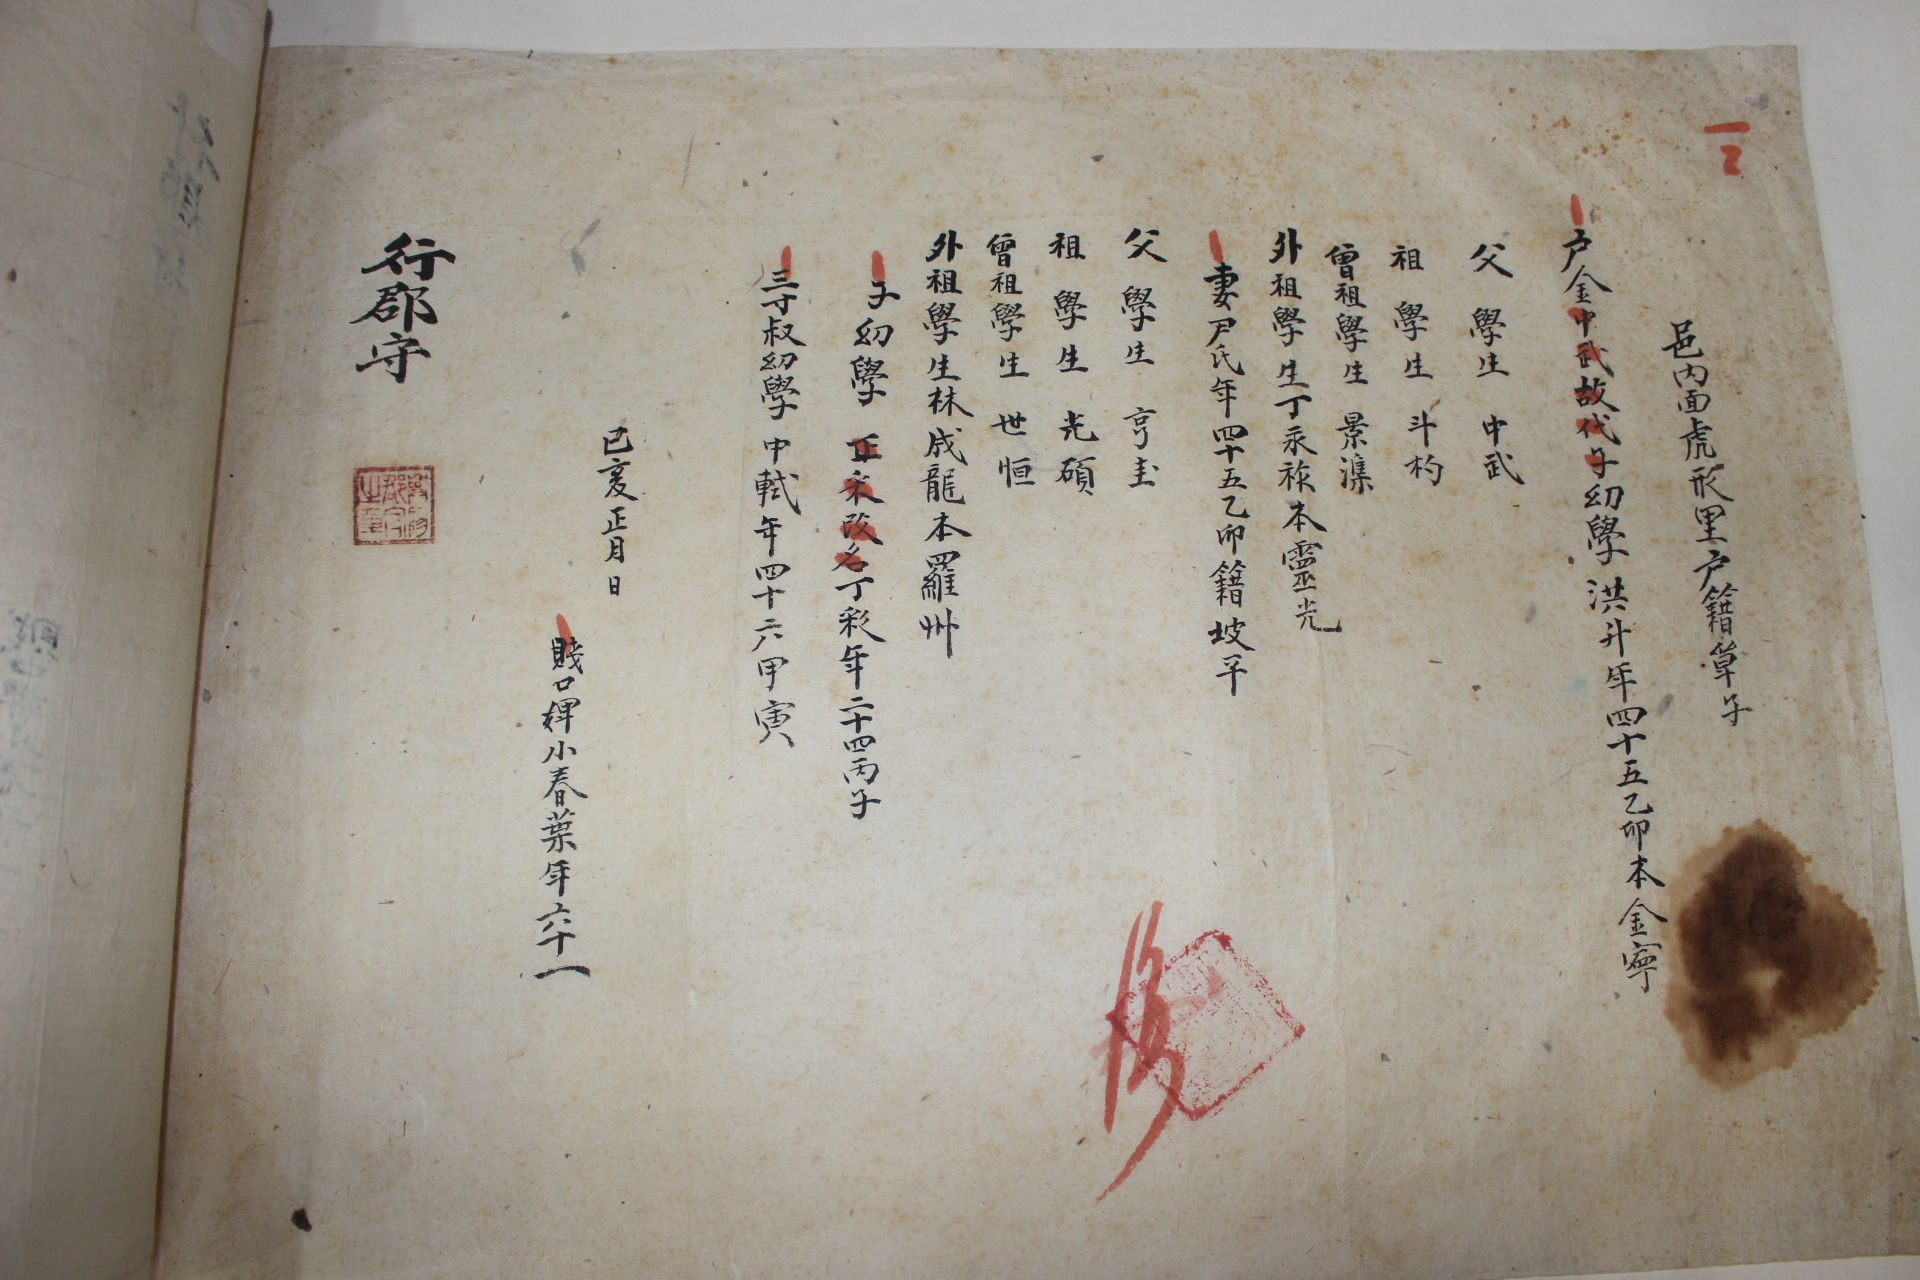 邑内面虎形里戶籍草子
戶金中武故代子幼學洪升年四十五乙卯本金寧
父學生中武
祖學生斗杓
曾祖學生景潗
外祖學生丁永祚本靈光
妻尹氏年四十五乙卯籍坡平
父學生亨圭
祖學生光碩
曾祖學生世恒
外祖學生林成龍本羅州
子幼學正采改名丁彩年二十四丙子
三寸叔幼學中軾年四十六甲寅
己亥正月日
賤口婢小春葉年六十一
行郡守